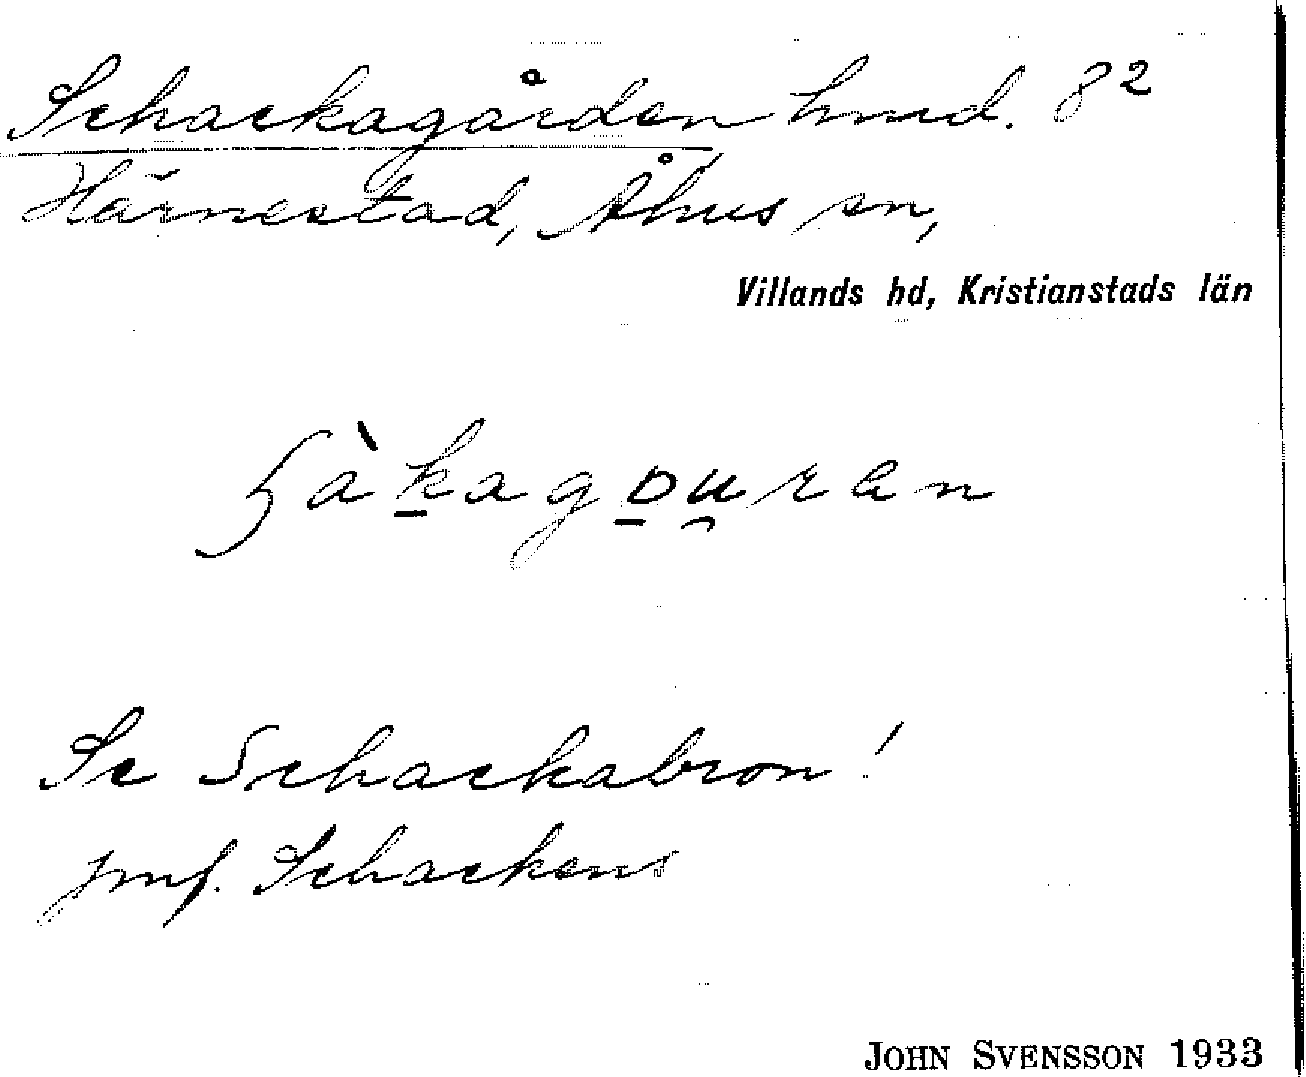 Schackagården hmd. 8²
Härnestad, Åhus sn,
Villands hd, Kristianstads län
Se Schackabron!
jmf. Schackens
JOHN SVENSSON 1933